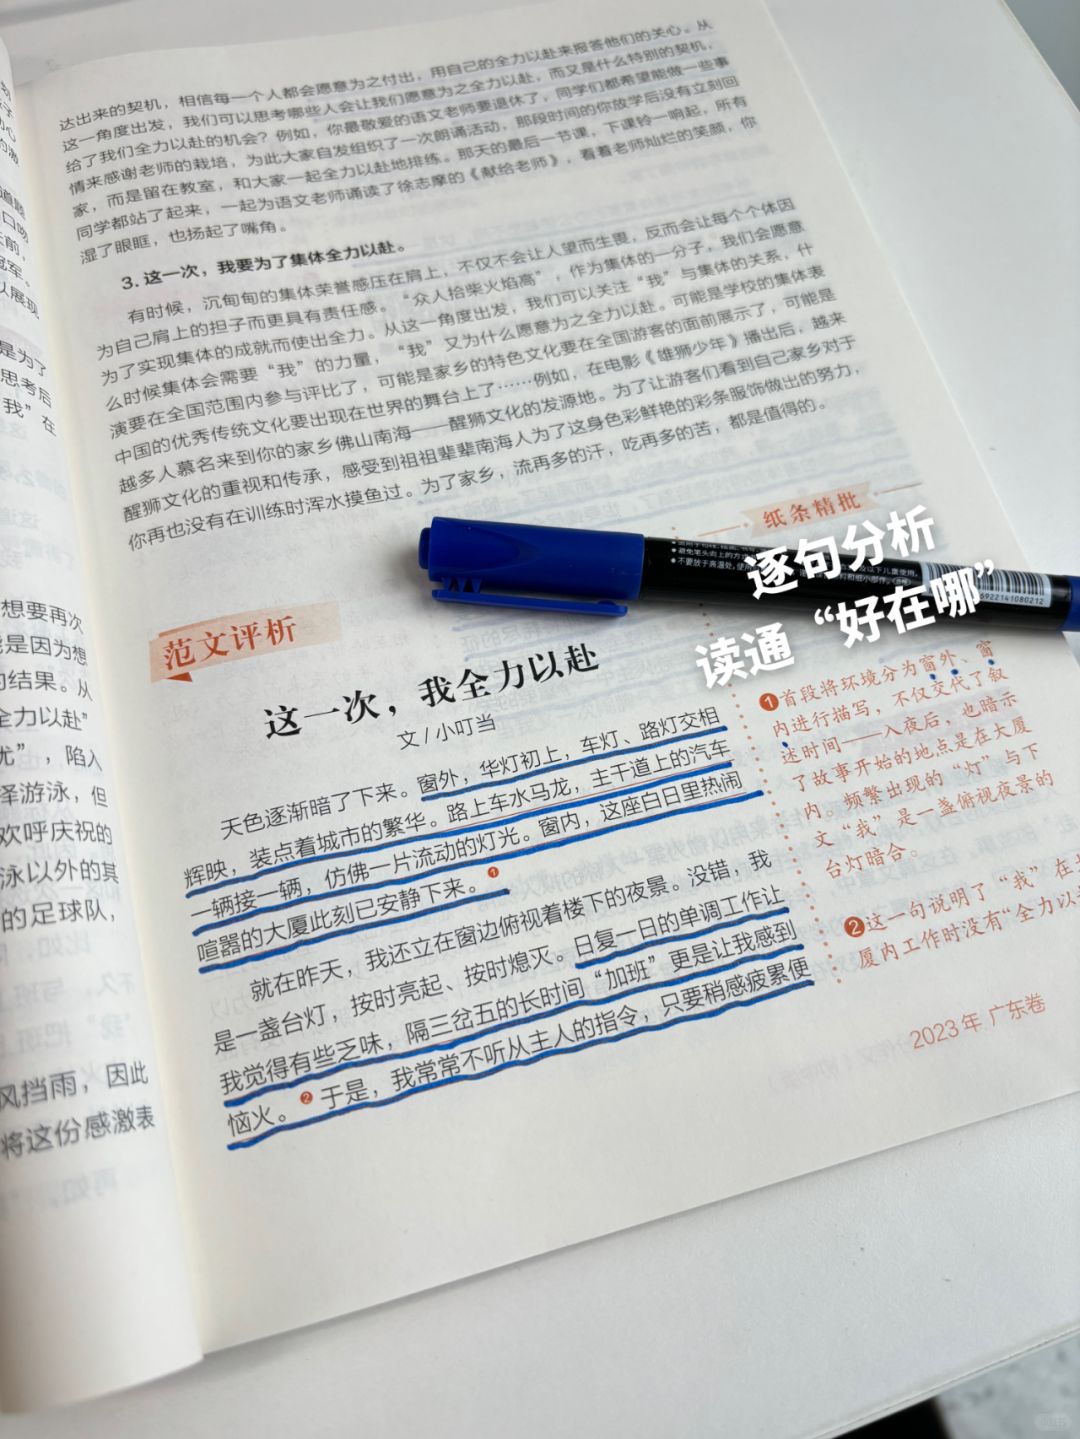 达出来的契机，相信每一个人都会愿意为之付出，用自己的全力以赴来报答他们的关心。从
这一角度出发，我们可以思考哪些人会让我们愿意为之全力以赴，而又是什么特别的契机，
给了我们全力以赴的机会？例如，你最敬爱的语文老师要退休了，同学们都希望能做一些事
情来感谢老师的栽培，为此大家自发组织了一次朗诵活动，那段时间的你放学后没有立刻回
家，而是留在教室，和大家一起全力以赴地排练。那天的最后一节课，下课铃一响起，所有
同学都站了起来，一起为语文老师诵读了徐志摩的《献给老师》，看着老师灿烂的笑颜，你
湿了眼眶，也扬起了嘴角。
3. 这一次，我要为了集体全力以赴。
有时候，沉甸甸的集体荣誉感压在肩上，不仅不会让人望而生畏，反而会让每个个体因
为自己肩上的担子而更具有责任感。“众人拾柴火焰高”，作为集体的一分子，我们会愿意
为了实现集体的成就而使出全力。从这一角度出发，我们可以关注“我”与集体的关系，什
么时候集体会需要“我”的力量，“我”又为什么愿意为之全力以赴。可能是学校的集体表
演要在全国范围内参与评比了，可能是家乡的特色文化要在全国游客的面前展示了，可能是
中国的优秀传统文化要出现在世界的舞台上了……例如，在电影《雄狮少年》播出后，越来
越多人慕名来到你的家乡佛山南海——醒狮文化的发源地。为了让游客们看到自己家乡对于
醒狮文化的重视和传承，感受到祖祖辈辈南海人为了这身色彩鲜艳的彩条服饰做出的努力，
你再也没有在训练时浑水摸鱼过。为了家乡，流再多的汗，吃再多的苦，都是值得的。
纸条精批
逐句分析
读通“好在哪”
6922141080212
范文评析
这一次，我全力以赴
文/小叮当
天色逐渐暗了下来。窗外，华灯初上，车灯、路灯交相
辉映，装点着城市的繁华。路上车水马龙，主干道上的汽车
一辆接一辆，仿佛一片流动的灯光。窗内，这座白日里热闹
喧嚣的大厦此刻已安静下来。❶
就在昨天，我还立在窗边俯视着楼下的夜景。没错，我
是一盏台灯，按时亮起、按时熄灭。日复一日的单调工作让
我觉得有些乏味，隔三岔五的长时间“加班”更是让我感到
恼火。❷于是，我常常不听从主人的指令，只要稍感疲累便
❶首段将环境分为窗外、窗
内进行描写，不仅交代了叙
述时间——入夜后，也暗示
了故事开始的地点是在大厦
内。频繁出现的“灯”与下
文“我”是一盏俯视夜景的
台灯暗合。
❷这一句说明了“我”在大
厦内工作时没有“全力以赴
2023年 广东卷
想要再次
是因为想
的结果。从
全力以赴”
忧”，陷入
择游泳，但
欢呼庆祝的
泳以外的其
的足球队，
风挡雨，因此
将这份感激表